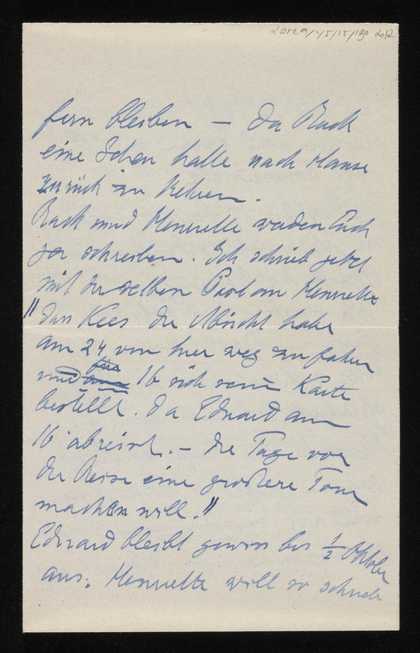 fern bleiben — Da Ruck
eine Scheu hatte nach Hause
zurück zu kehren.
Ruck und Henriette werden Euch
ja schreiben. Ich schrieb jetzt
mit derselben Post an Henriette
"dass Kees die Absicht habe
am 24 von hier weg zu fahren
und für 16 sich seine Karte
bestellt. da Eduard am
16 abreist. — die Tage vor
der Reise eine grössere Tour
machen will."
Eduard bleibt gewiss bis ½ Oktober
aus. Henriette will so schnell